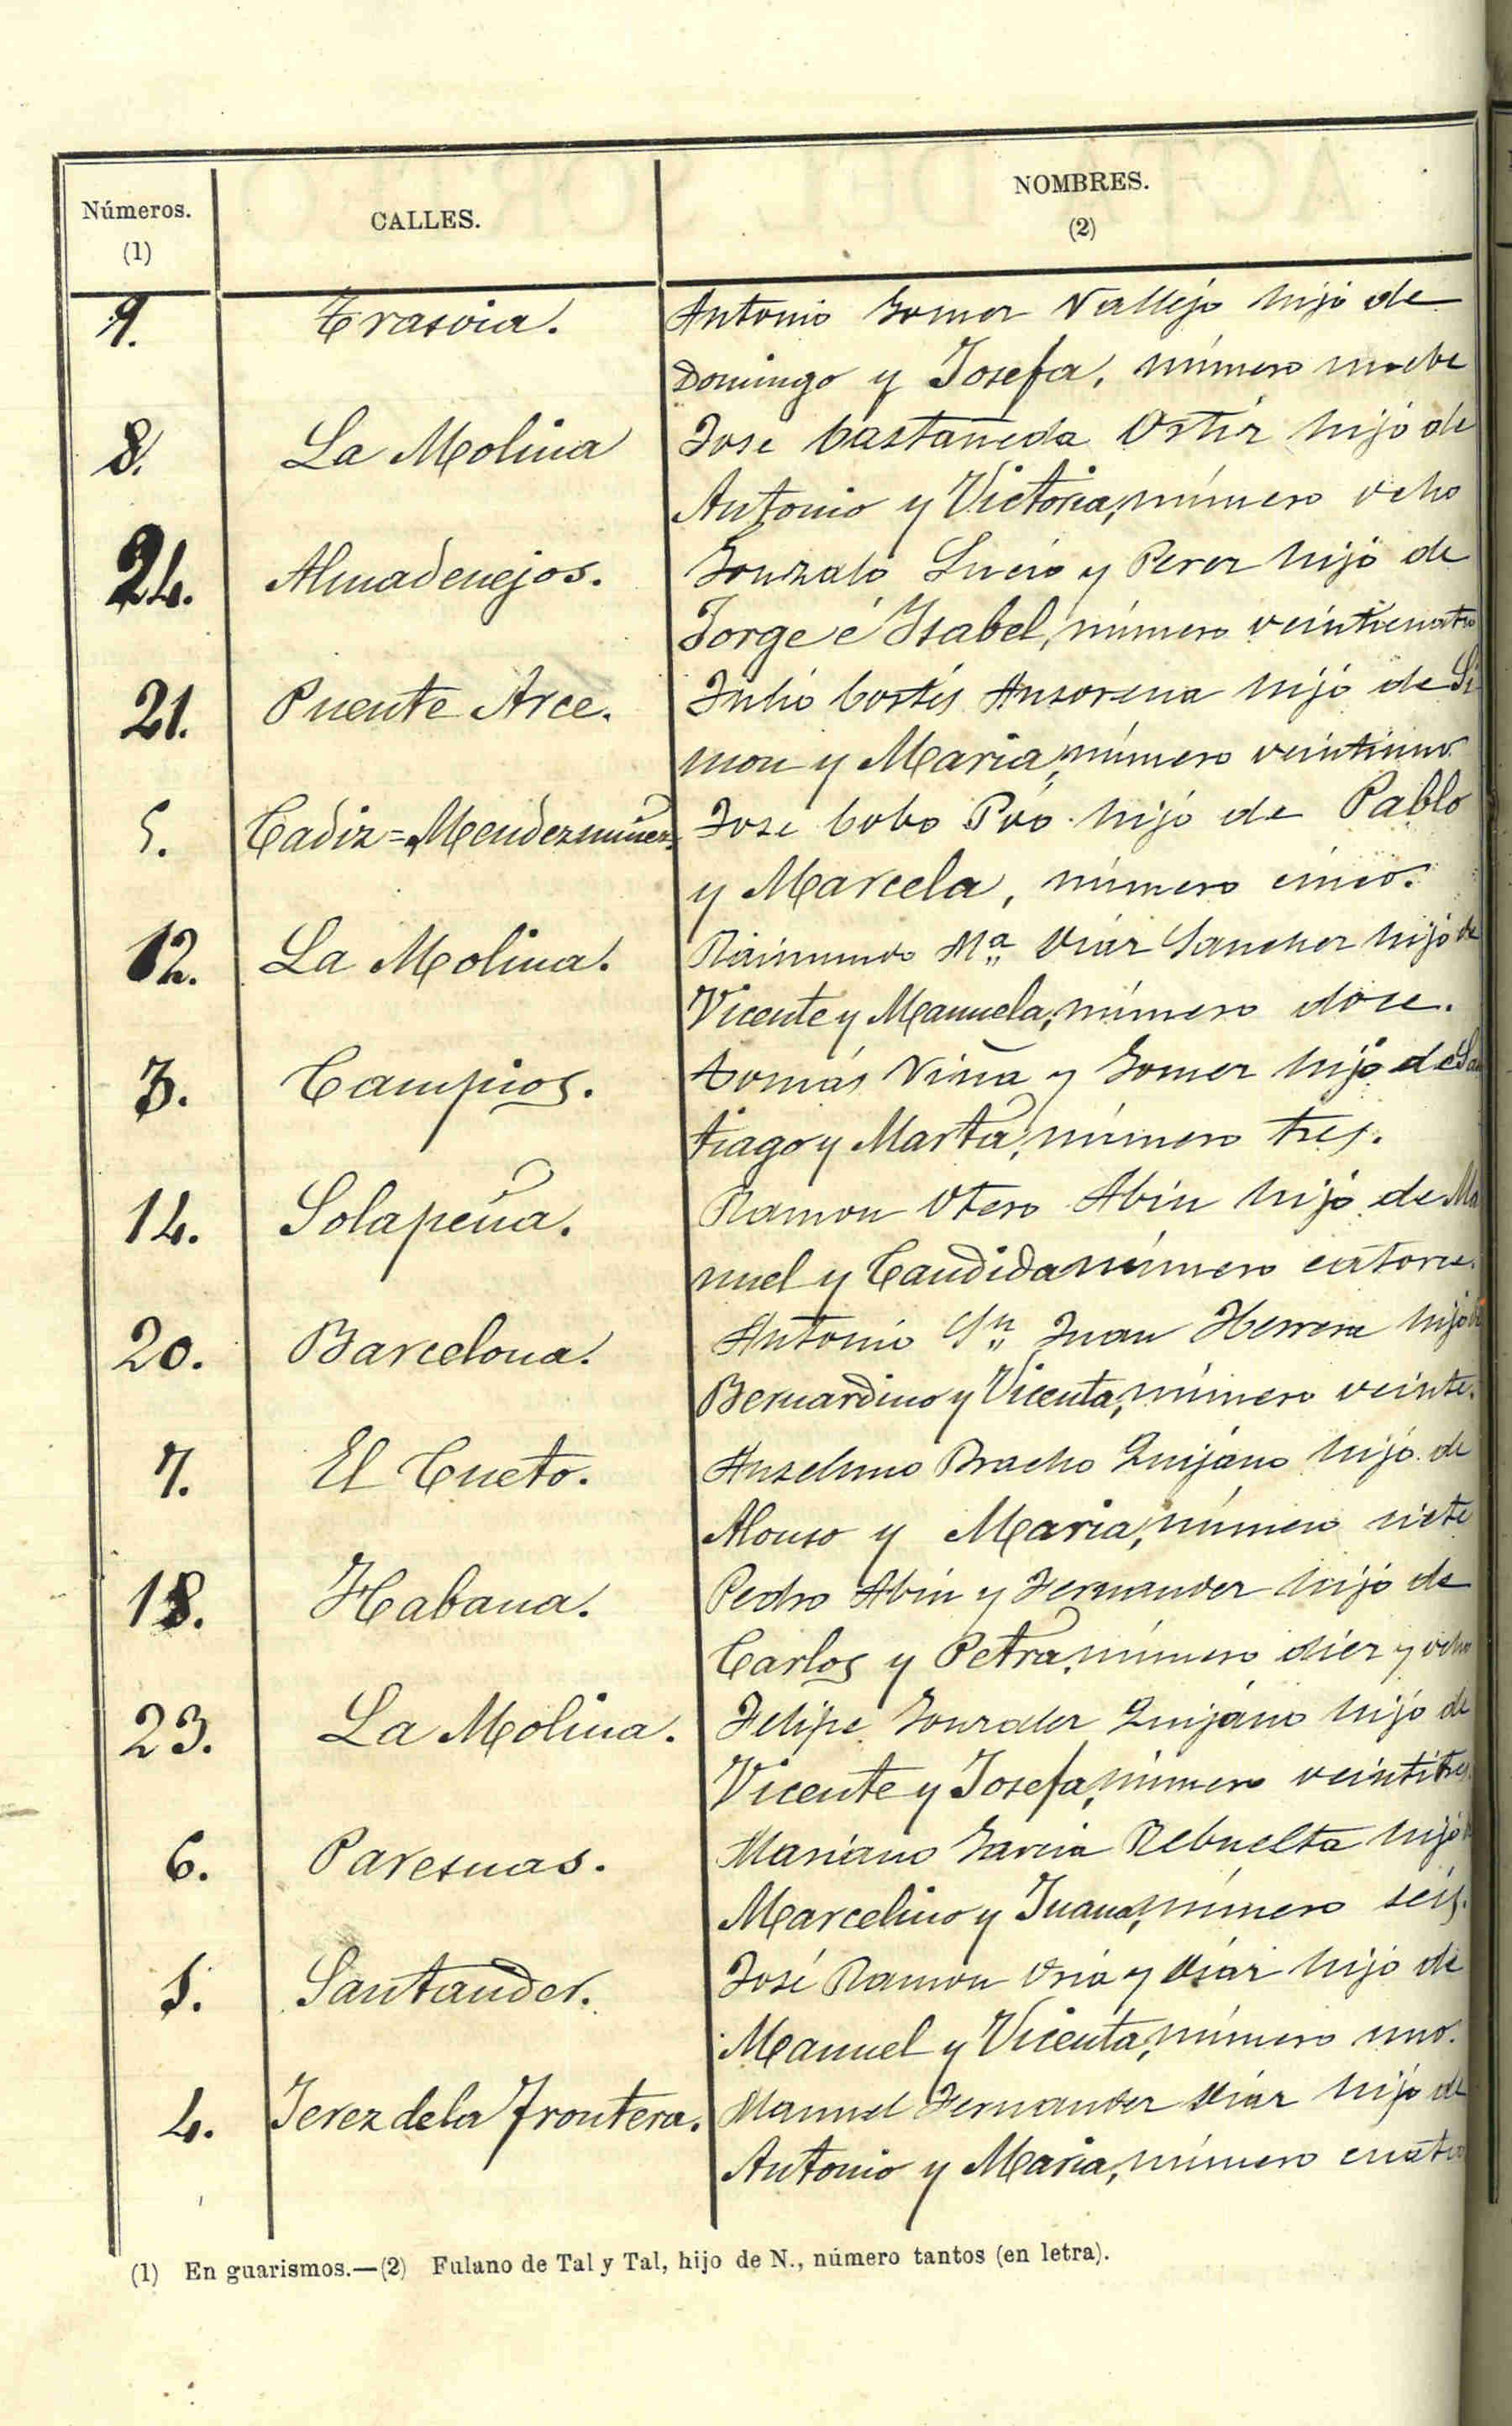 Números.
(1)
CALLES.
NOMBRES.
(2)
9. Trasvia. Antonio Gomez Vallejo hijo de
Domingo y Josefa, número nuebe
8. La Molina Jose Castañeda Ortiz hijo de
Antonio y Victoria, número ocho
24. Almadenejos. Gonzalo Lucio y Perez hijo de
Jorge é Isabel, número veinticuatro
21. Puente Arce. Julio Cortés Ansorena hijo de Si
mon y Maria, número veintiuno.
5. Cadiz=Mendezmuñez Jose Cobo Póo hijo de Pablo
y Marcela, número cinco.
12. La Molina. Raimundo Mª Diaz Sanchez hijo de
Vicente y Manuela, número doce.
3. Campios. Tomás Viña y Gomez hijo de San
tiago y Marta, número tres.
14. Solapeña. Ramon Otero Abin hijo de Ma
nuel y Candida número catorce.
20. Barcelona. Antonio Sn Juan Herrera hijo de
Bernardino y Vicenta, número veinte.
7. El Cueto. Anselmo Bracho Quijano hijo de
Alonso y Maria, número siete
18. Habana. Pedro Abin y Fernandez hijo de
Carlos y Petra, número diez y ocho
23. La Molina. Felipe Gonzalez Quijano hijo de
Vicente y Josefa, número veintitres.
6. Paresuas. Mariano Garcia Rebuelta hijo de
Marcelino y Juana, número seis.
1. Santander. José Ramon Oria y Diaz hijo de
Manuel y Vicenta, número uno.
4. Jerez de la Frontera. Manuel Fernandez Diaz hijo de
Antonio y Maria, número cuatro
(1) En guarismos.—(2) Fulano de Tal y Tal, hijo de N., número tantos (en letra).